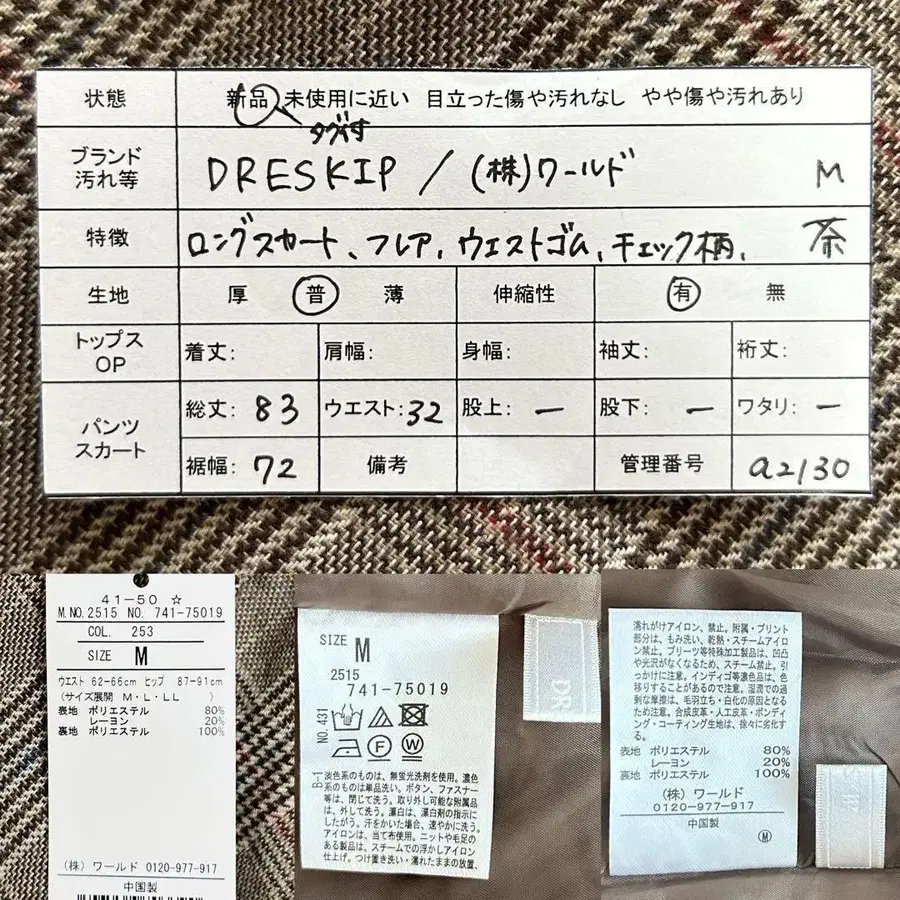 状態 新品 未使用に近い 目立った傷や汚れなし やや傷や汚れあり
タグ付
ブランド 汚れ等 DRESKIP / (株)ワールド M
特徴 ロングスカート、フレア、ウエストゴム、チェック柄、 茶
生地 厚 普 薄 伸縮性 有 無
トップス OP 着丈: 肩幅: 身幅: 袖丈: 裄丈:
パンツ スカート 総丈: 83 ウエスト: 32 股上: ー 股下: ー ワタリ: ー
裾幅: 72 備考 管理番号 a2130
41-50 ☆
M.NO.2515 NO. 741-75019
COL. 253
SIZE M
ウエスト 62-66cm ヒップ 87-91cm
(サイズ展開 M・L・LL )
表地 ポリエステル 80%
レーヨン 20%
裏地 ポリエステル 100%
(株)ワールド 0120-977-917
中国製
SIZE M
2515
741-75019
NO.431
B-1
淡色系のものは、無蛍光洗剤を使用。濃色
系のものは単品洗い。ボタン、ファスナー
等は、閉じて洗う。取り外し可能な附属品
は、外して洗う。漂白は、漂白剤の指示に
したがう。汗をかいた場合、速やかに洗う。
アイロンは、当て布使用。ニットや毛足の
ある製品は、スチームでの浮かしアイロン
仕上げ。つけ置き洗い・濡れたままの放置、
DR
濡れがけアイロン、禁止。附属・プリント
部分は、もみ洗い、乾熱・スチームアイロ
ン禁止。プリーツ等特殊加工製品は、凹凸
や光沢がなくなるため、スチーム禁止。引
っかけに注意。インディゴ等濃色品は、色
移りすることがあるので注意。湿潤での過
剰な摩擦は、毛羽立ち・白化の原因となる
ため注意。合成皮革・人工皮革・ボンディ
ング・コーティング生地は、徐々に劣化す
る。
表地 ポリエステル 80%
レーヨン 20%
裏地 ポリエステル 100%
(株)ワールド
0120-977-917
中国製
M